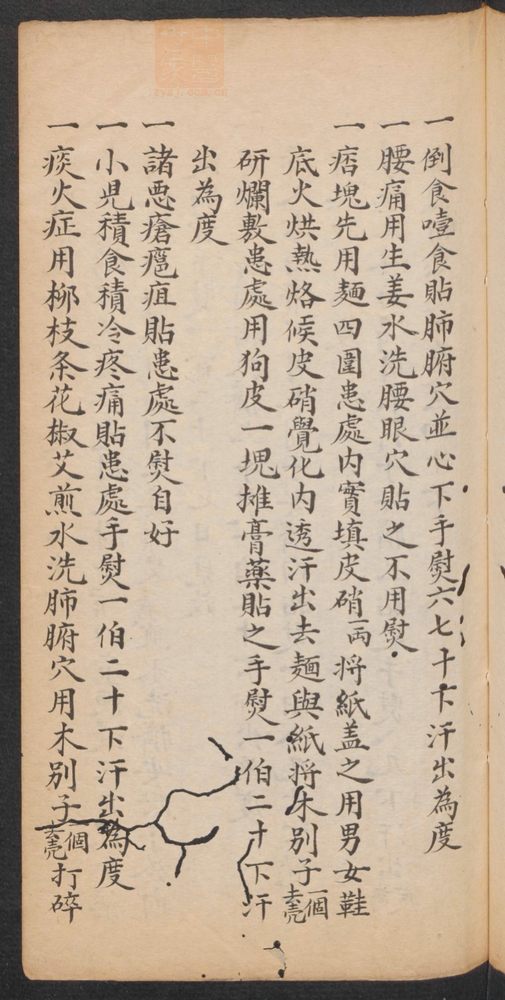 一倒食噎食貼肺腑穴並心下手熨六七十下汗出為度
一腰痛用生姜水洗腰眼穴貼之不用熨
一痞塊先用麵四圍患處内實填皮硝一两将紙盖之用男女鞋
底火烘熱烙候皮硝覺化内透汗出去麵與紙将木別子一個去壳
研爛敷患處用狗皮一塊摊膏藥貼之手熨一伯二十下汗
出為度
一諸惡瘡瘟疽貼患處不熨自好
一小児積食積冷疼痛貼患處手熨一伯二十下汗出為度
一痰火症用柳枝条花椒艾煎水洗肺腑穴用木別子一個去壳打碎